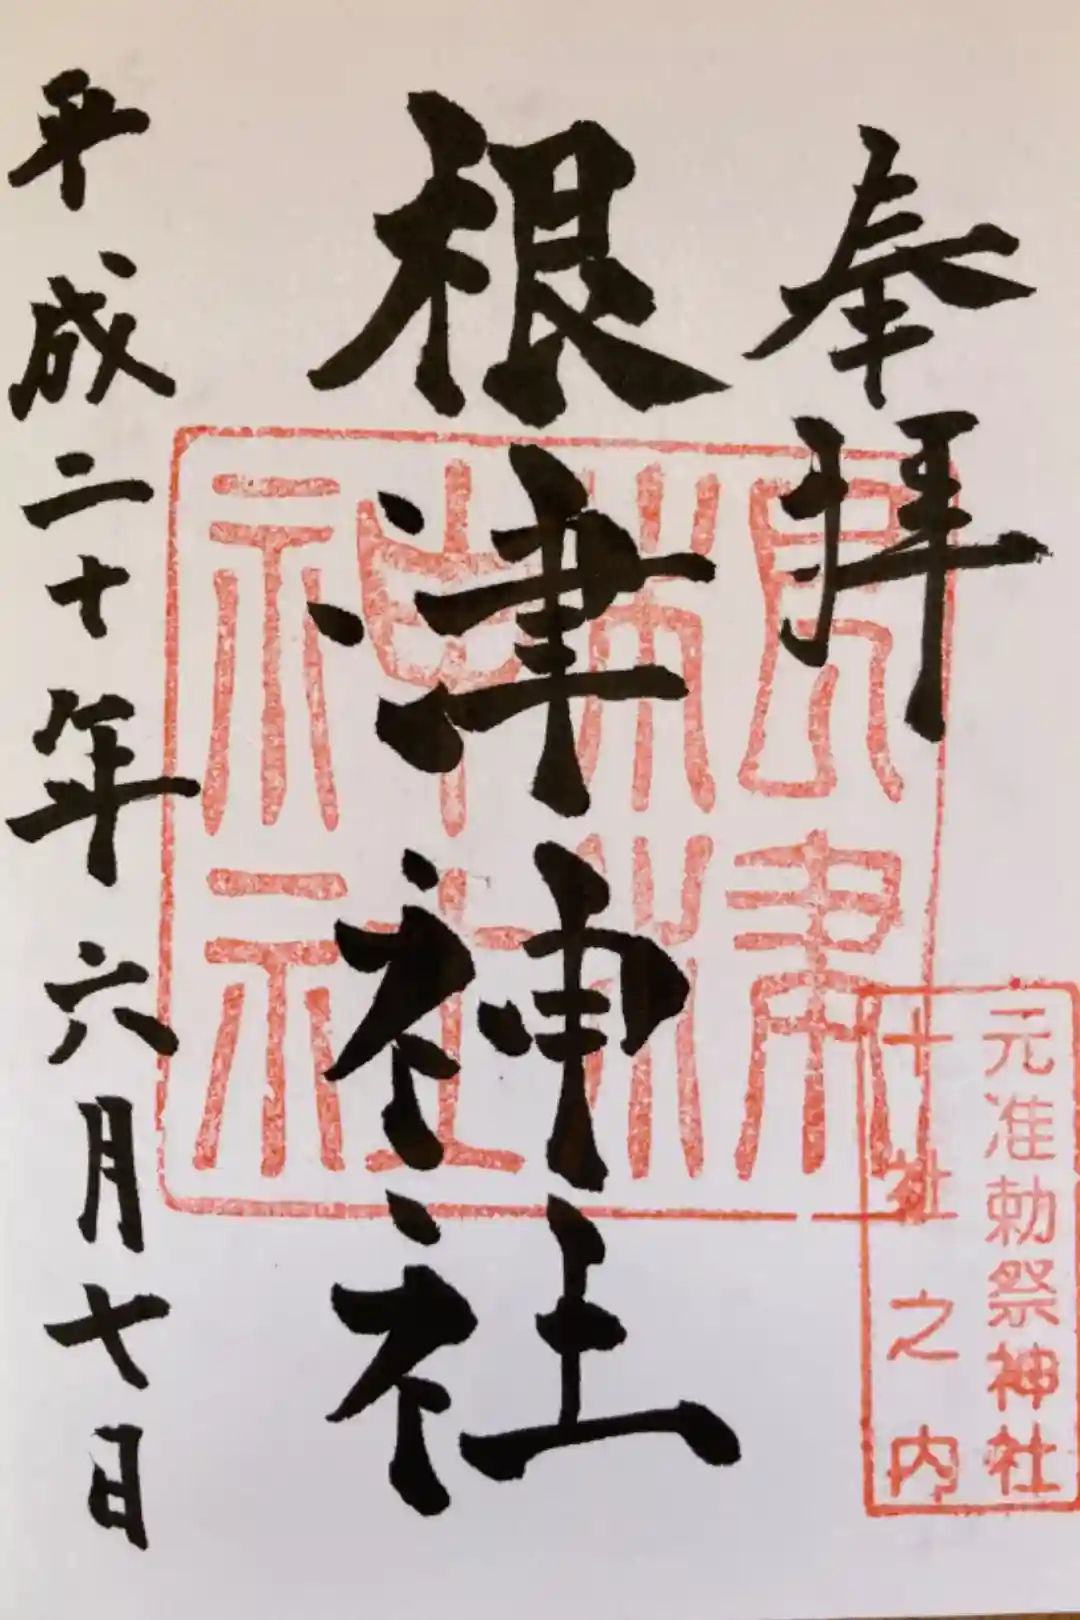 奉拝
根津神社
平成二十年六月七日
根津神社
元准勅祭神社
十社之内